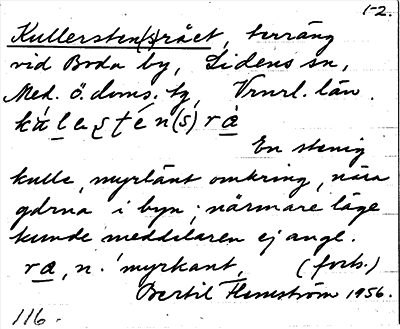 1-2.
Kullersten(s)rået, terräng
vid Boda by, Lidens sn,
Med. ö. doms. tg, Vnrl. län.
En stenig
kulle, myrlänt omkring, nära
gdrna i byn; närmare läge
kunde meddelaren ej angе.
ra, n. 'myrkant' (forts.)
Bertil Flemström 1956.
116.